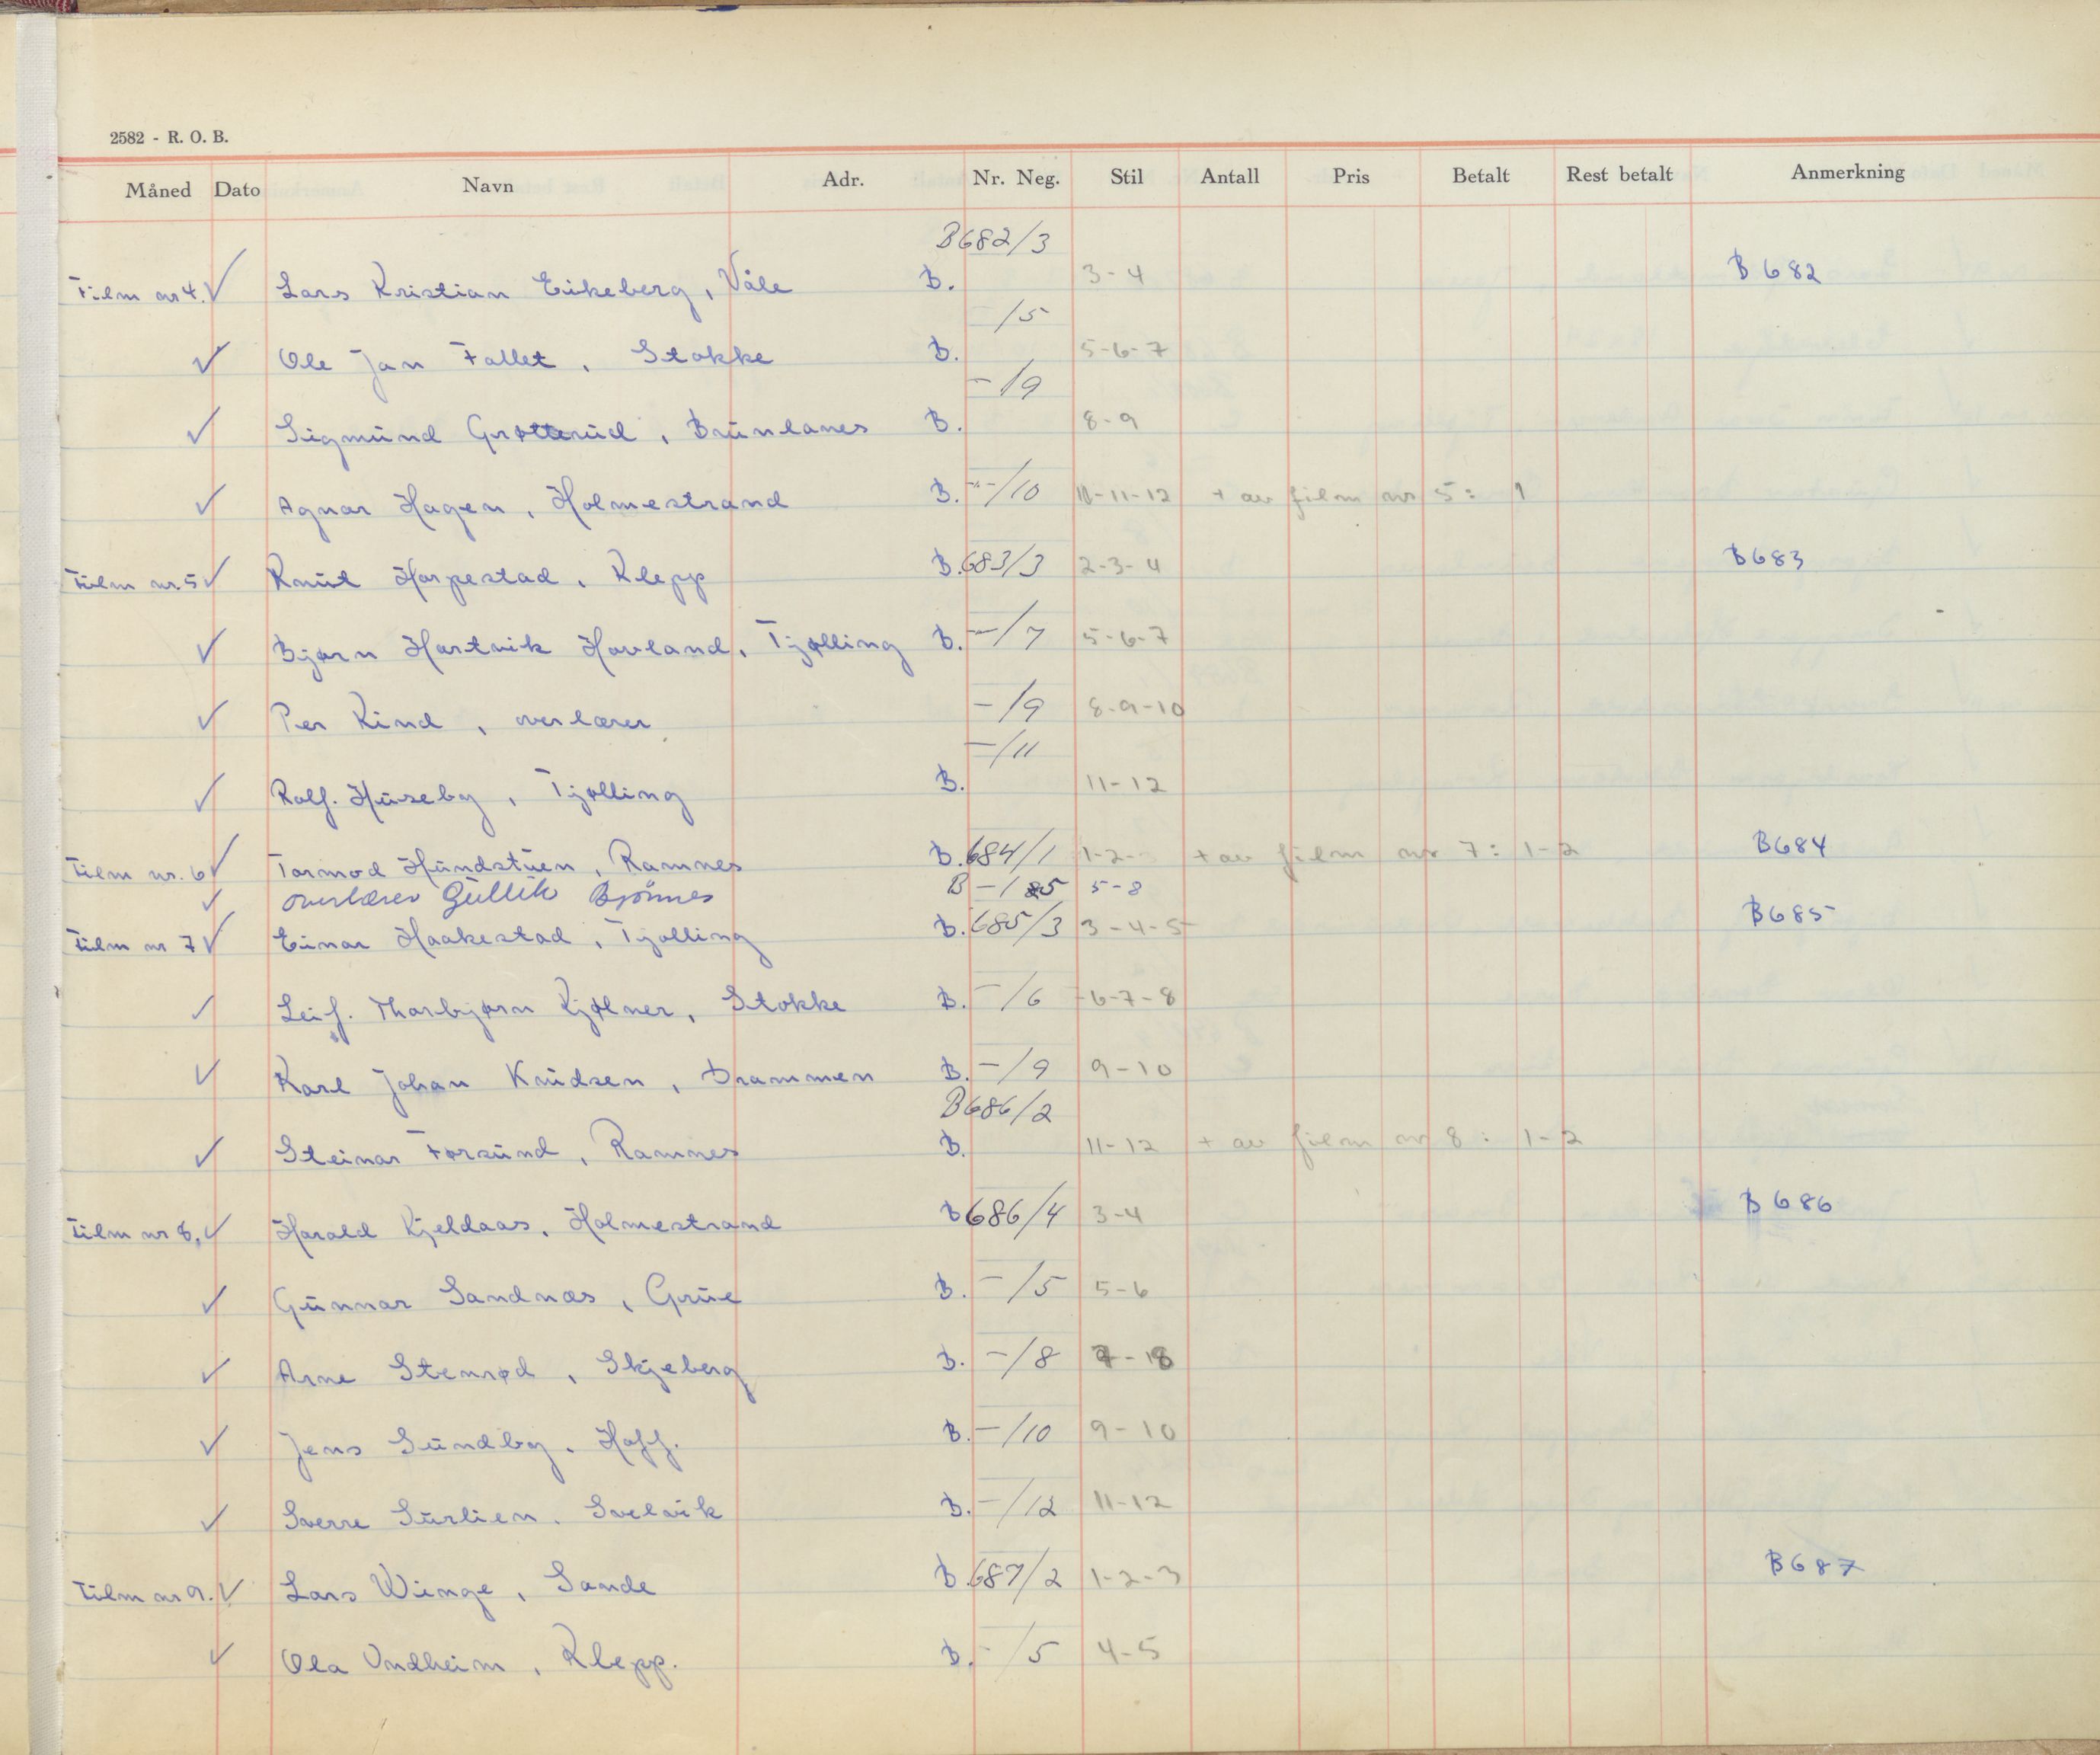 2582 - R. O. B.
Måned Dato Navn Adr. Nr. Neg. Stil Antall Pris Betalt Rest betalt Anmerkning
B682/3
Film nr 4. ✓ Lars Kristian Eikeberg, Våle B. 3-4 B 682
-/5
✓ Ole Jan Fallet, Stokke B. 5-6-7
-/9
✓ Sigmund Grøtterud, Brunlanes B. 8-9
✓ Agnar Hagen, Holmestrand B. -/10 10-11-12 + av film nr 5: 1
Film nr. 5 ✓ Knut Harpestad, Klepp B. 683/3 2-3-4 B683
✓ Bjørn Hartvik Havland, Tjølling B. -/7 5-6-7
✓ Per Kind, overlærer -/9 8-9-10
-/11
✓ Rolf. Huseby, Tjølling B. 11-12
Film nr. 6 ✓ Tormod Hundstuen, Ramnes B. 684/1 1-2- + av film nr 7: 1-2 B684
✓ overlærer Gullik Bjönnes B -/5 5-8
Film nr 7 ✓ Einar Haakestad, Tjølling B. 685/3 3-4-5 B685
✓ Leif. Thorbjørn Kjølner, Stokke B. -/6 6-7-8
✓ Karl Johan Knudsen, Drammen B. -/9 9-10
B686/2
✓ Steinar Førsund, Ramnes B. 11-12 + av film nr 8: 1-2
Film nr 8. ✓ Harald Kjeldaas, Holmestrand B 686/4 3-4 B 686
✓ Gunnar Sandnæs, Grue B. -/5 5-6
✓ Arne Stenrød, Skjeberg B. -/8 7-8
✓ Jens Sundby, Hoff. B. -/10 9-10
✓ Sverre Surlien, Svelvik B. -/12 11-12
Film nr 9. ✓ Lars Winge, Sande B. 687/2 1-2-3 B687
✓ Ola Undheim, Klepp. B. -/5 4-5